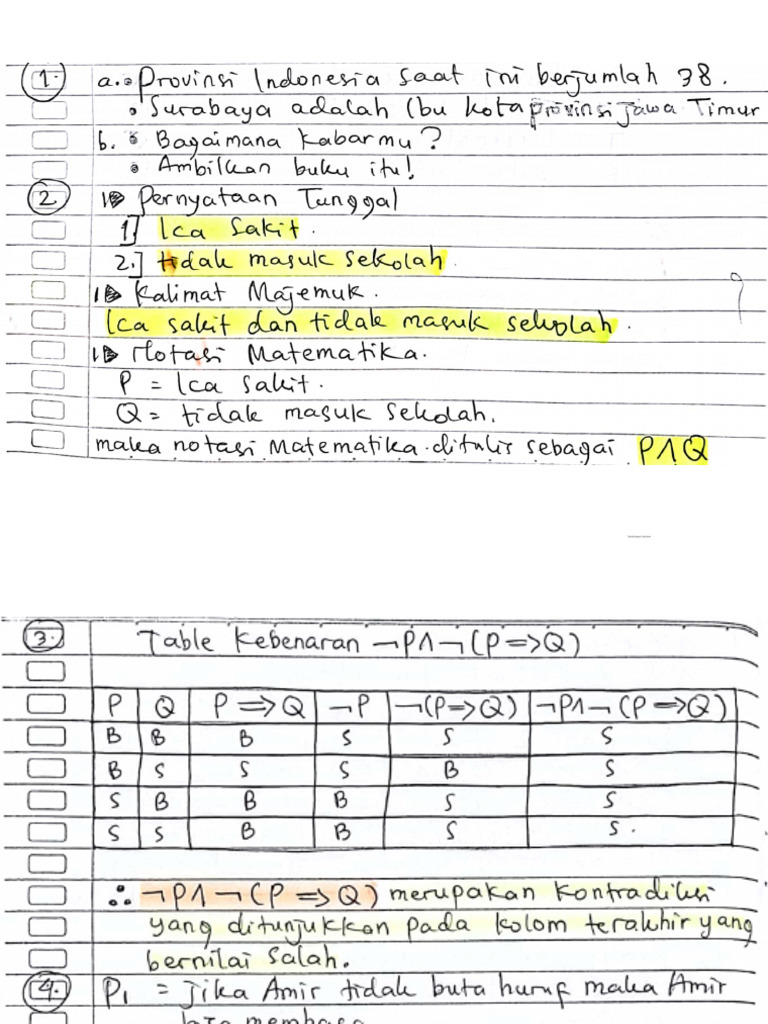 1. a. • Provinsi Indonesia saat ini berjumlah 38.
• Surabaya adalah Ibu kota provinsi Jawa Timur
b. • Bagaimana kabarmu?
• Ambilkan buku itu!
2. Pernyataan Tunggal
1] Ica Sakit.
2.] tidak masuk sekolah.
Kalimat Majemuk.
Ica sakit dan tidak masuk sekolah.
Notasi Matematika.
P = Ica sakit.
Q = tidak masuk sekolah.
maka notasi Matematika ditulis sebagai P∧Q
3. Table Kebenaran ¬P∧¬(P=>Q)
P Q P=>Q ¬P ¬(P=>Q) ¬P∧¬(P=>Q)
B B B S S S
B S S S B S
S B B B S S
S S B B S S.
∴ ¬P∧¬(P=>Q) merupakan kontradiksi
yang ditunjukkan pada kolom terakhir yang
bernilai Salah.
4. P1 = jika Amir tidak buta huruf maka Amir
bisa membaca